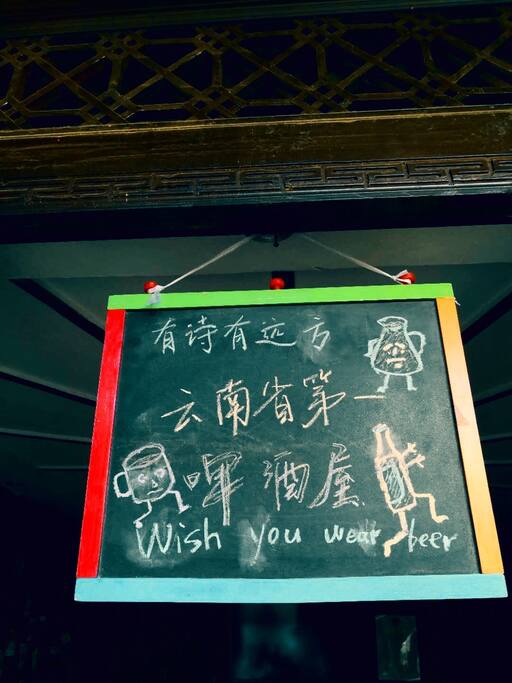 有诗有远方
云南省第一
啤酒屋
Wish you wear beer